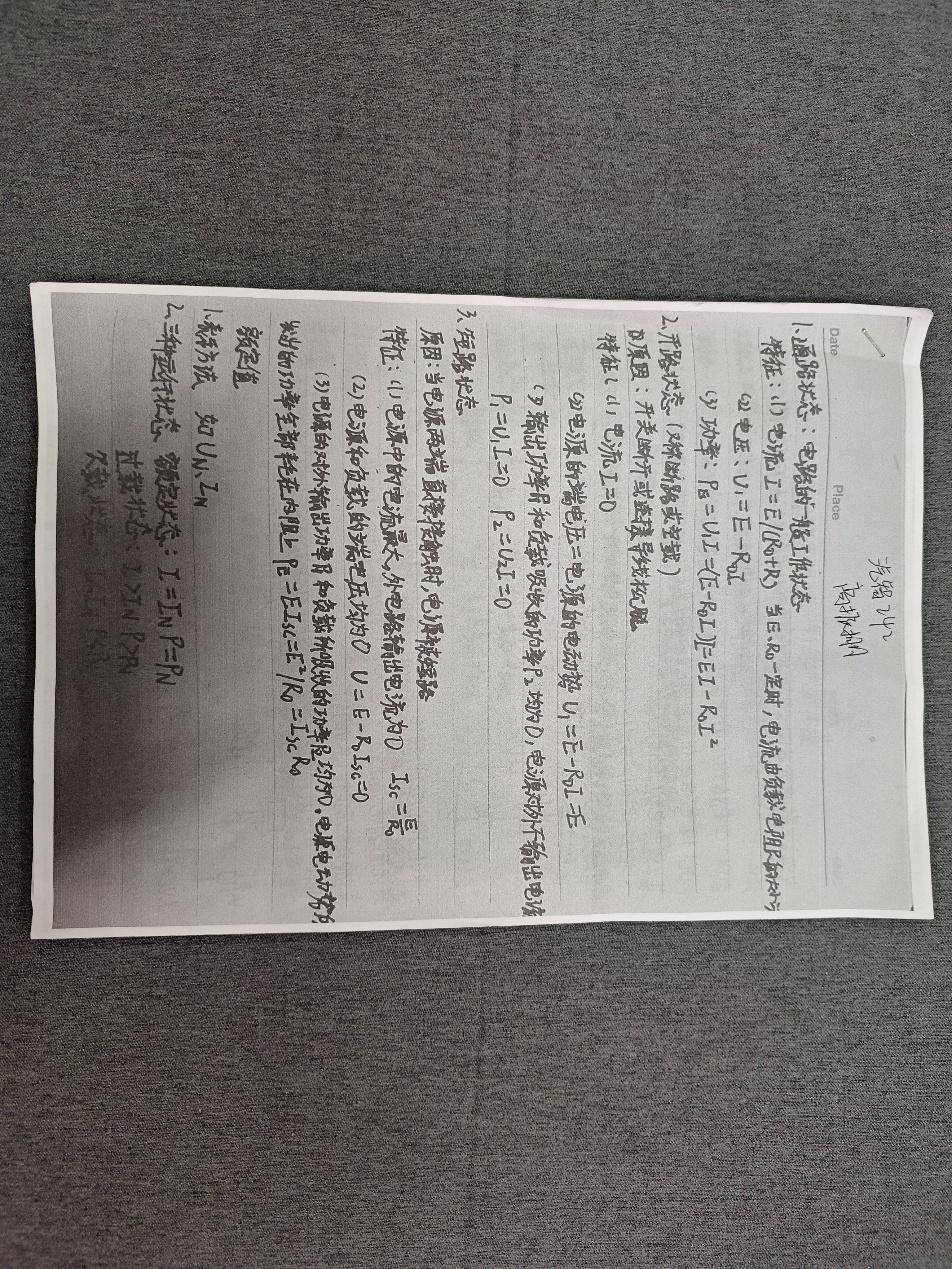 汽智242
Date
Place
1.通路状态：电路的一般工作状态
特征：(1)电流 I=E/(R0+R) 当E、R0一定时，电流由负载电阻R的大小
(2)电压：U1=E-R0I
(3)功率：PE=U1I=(E-R0I)I=EI-R0I²
2.开路状态（又称断路或空载）
原因：开关断开或连接导线松脱
特征：(1)电流I=0
(2)电源的端电压=电源的电动势 U1=E-R0I=E
(3)输出功率P1和负载吸收的功率P2均为0，电源对外不输出电流
P1=U1I=0 P2=U2I=0
3.短路状态
原因：当电源两端直接接触时，电源被短路
特征：(1)电源中的电流最大，外电路输出电流为0 ISC=E/R0
(2)电源和负载的端电压均为0 U=E-R0ISC=0
(3)电源的对外输出功率P1和负载所吸收的功率P2均为0。电源电动势
发出的功率全部耗在内阻上 PE=EISC=E²/R0=ISCR0
额定值
1.表示方法 如UN、IN
2.三种运行状态 额定状态：I=IN P=PN
过载状态：I>IN P>PN
欠载